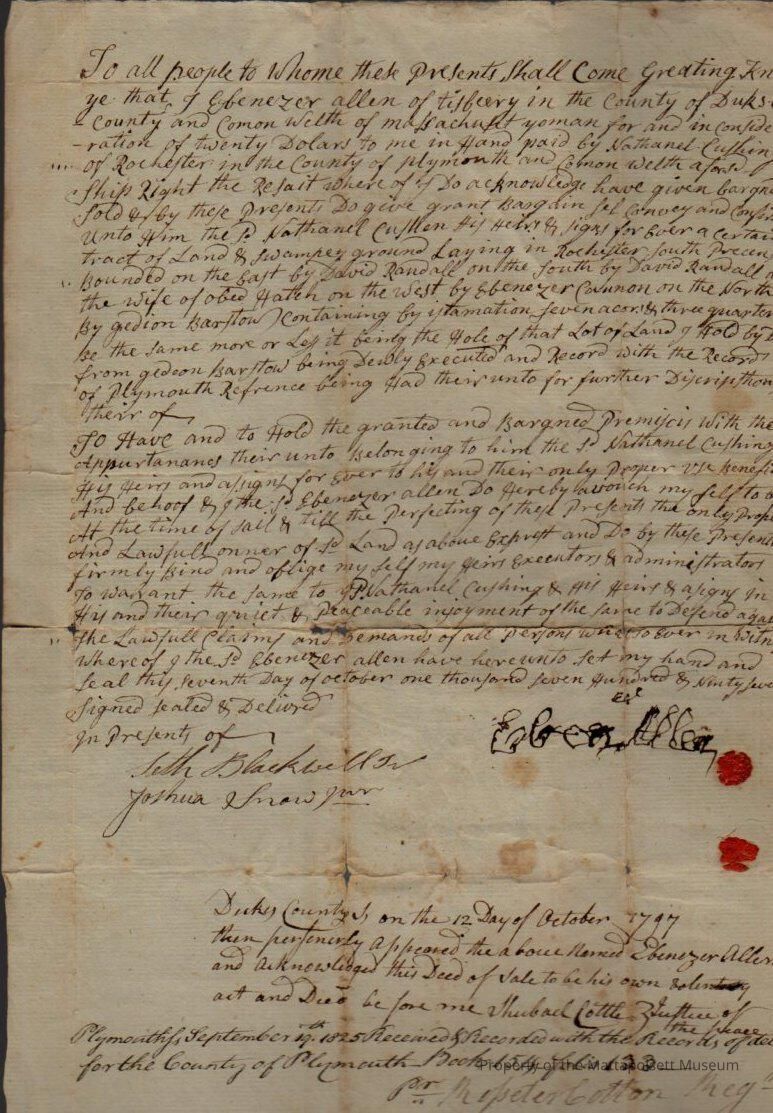 To all people to Whome these Presents Shall Come Greeting Kn
ye that I Ebenezer allen of tisbeery in the County of Duks
County and Comon Welth of massachust yoman for and in Conside
-ration of twenty Dolars to me in Hand paid by Nathanel Cushin
of Rochester in the County of plymouth and Comon Welth afores.d
Ship Right the Resait where of I Do acknowledge have given bargn
Sold & by these Presents Do give grant Bargain Sel Convey and Confir
Unto Him the s.d Nathanel Cushen His Heirs & signs for Ever a Certai
tract of Land & Swampey ground Laying in Rochester South Precen
Bounded on the East by David Randall on the South by David Randall
the wife of obed Hatch on the West by Ebenezer Cannon on the North
By gedion Barstow Containing by istamation Seven acors & three quarter
Be the same more or Less it being the Hole of that Lot of Land I Hold by
from gedeon Barstow being Dewly Executed and Record with the Records
of Plymouth Refrence being Had their unto for further Discripthon
their of
To Have and to Hold the granted and Bargned Premiscis With the
Appurtanancs their unto Belonging to him the s.d Nathanel Cushing
His Heirs and assigns for Ever to his and their only Proper Use Benefi
And behoof & I the s.d Ebenezer allen Do Hereby avouch my self to
At the time of sail & till the Perfecting of these Presents the only Prop
And Lawfull onner of s.d Land as above Exprest and Do by these Present
firmly Bind and oblige my self my Heirs Executors & administrators
To warrant the same to s.d Nathanel Cushing & His Heirs & asigns in
His and their quiet & Peaceable injoyment of the same to Defend aga
the Lawfull Claims and Demands of all Persons What so Ever in Witn
whereof I the s.d Ebenezer allen have here unto Set my hand and
Seal this Seventh Day of october one thousand seven Hundred & Ninty seve
Signed seated & Delivred
In Presents of
Ebenezer Allen
Seth Blackwell
Joshua Snow jur
Dukes County S on the 12 Day of October 1797
then personerly Appeared the above Named Ebenezer Allen
and Acknowledged this Deed of Sale to be his own volentary
act and Deed before me Shubael Cottle Justice of
the peace
Plymouth, September 19.th 1825 Received & Recorded with the Records of de
for the County of Plymouth Book 154 folio 33
Pr Rosseter Cotton Reg
Property of the Mattapoisett Museum